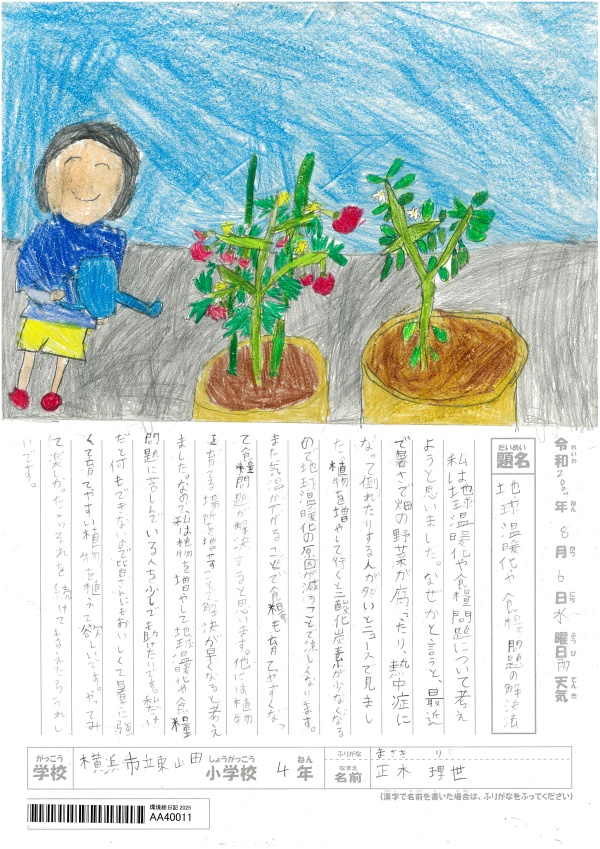 令和2024年8月6日水曜日雨天気
れいわ ねん がつ にち ようび てんき
だいめい
題名
地球温暖化や食糧問題の解決法
私は地球温暖化や食糧問題について考え
ようと思いました。なぜかと言うと、最近
で暑さで畑の野菜が腐ったり、熱中症に
なって倒れたりする人が多いとニュースで見まし
た。植物を増やして行くと二酸化炭素が少なくなる
ので地球温暖化の原因が減ることで涼しくなります。
また気温が下がることで食糧も育てやすくなっ
て食糧問題が解決すると思います。他には植物
を育てる場所を増やすことで解決が早くなると考え
ました。なので、私は植物を増やして地球温暖化や食糧
問題に苦しんでいる人を少しでも助けたいです。私だけ
だと何もできないので皆さんにもおいしくて暑さに強
くて育てやすい植物を植えて欲しいです。やってみ
て楽しかったらそれを続けてもらえたらうれし
いです。
がっこう
学校
横浜市立東山田
しょうがっこう
小学校
4
ねん
年
ふりがな
まさき り
なまえ
名前
正木 理世
(漢字で名前を書いた場合は、ふりがなをふってください)
環境絵日記 2025
AA40011